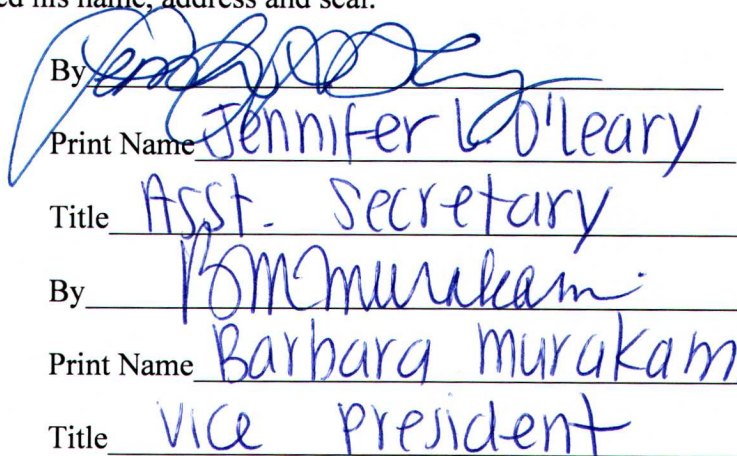 ed his name, address and seal.
By
Print Name Jennifer L. O'Leary
Title Asst. Secretary
By BMMurakami
Print Name Barbara Murakam
Title Vice President